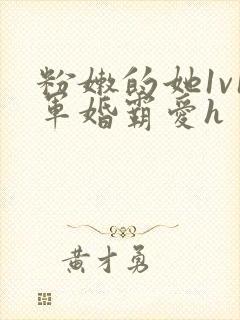 粉嫩的她1v1
军婚霸爱h
黄才勇